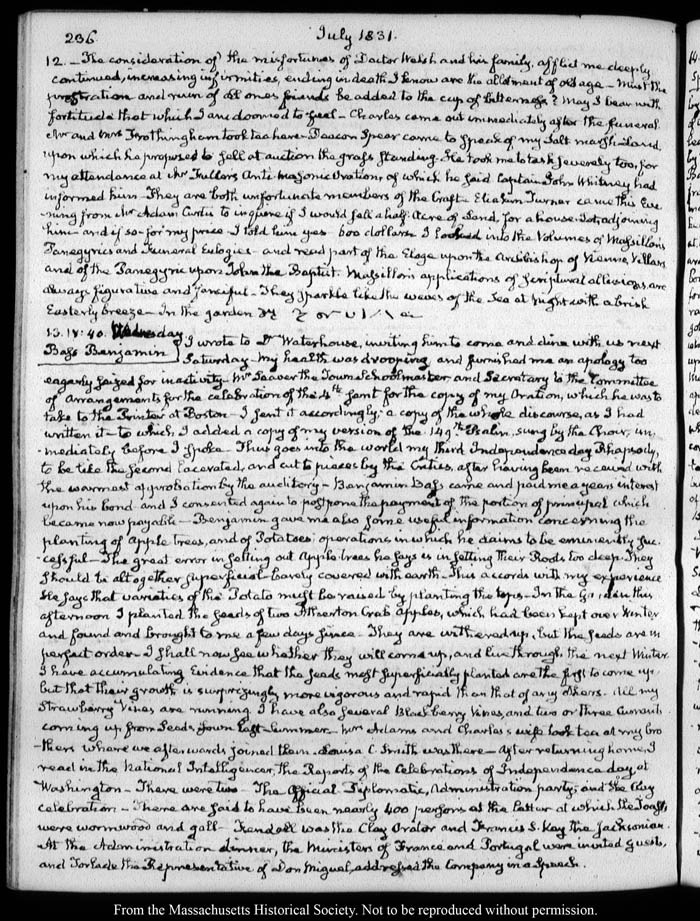 236 July 1831.
12. — The consideration of the misfortunes of Doctor Welsh and his family, afflict me deeply
continued, increasing infirmities, ending in death I know are the allotment of old age — Must the
prostration and ruin of all ones friends be added to the cup of bitterness? May I bear with
fortitude that which I am doomed to feel — Charles came out immediately after the funeral.
Mr and Mrs Frothingham took tea here — Deacon Spear came to speak of my Salt marsh land
upon which he proposed to sell at auction the grass standing. He took me to task severely too, for
my attendance at Mr Fullers Anti-Masonic Oration, of which he said Captain John Whitney had
informed him — They are both unfortunate members of the Craft — Elisha Turner came this Eve
ning from Mr Adam Curtis to inquire if I would sell a half Acre of Land, for a house-lot adjoining
him — and if so — for my price — I told him yes 600 dollars. I looked into the Volumes of Massillon's
Panegyrics and Funeral Eulogies — and read part of the Eloge upon the Archbishop of Vienne, Villars
and of the Panegyric upon John the Baptist. Massillon's applications of Scriptural allusions, are
always figurative and fanciful — They sparkle like the waves of the Sea at Night with a brisk
Easterly breeze — In the garden
13. IV: 40. Wednesday
Bass Benjamin I wrote to Dr Waterhouse, inviting him to come and dine with us next
Saturday — My health was drooping, and furnished me an apology too
eagerly seized for inactivity — Mr Seaver the Town Schoolmaster, and Secretary to the Committee
of Arrangements for the celebration of the 4th sent for the copy of my Oration, which he was to
take to the Printer at Boston — I sent it accordingly; a copy of the whole discourse, as I had
written it — to which I added a copy of my version of the 149th Psalm, sung by the Choir, im
-mediately before I spoke — Thus goes into the world my third Independence day Rhapsody,
to be like the second lacerated, and cut to pieces by the Critics, after having been received with
the warmest approbation by the auditory — Benjamin Bass came and paid me a years interest
upon his bond — and I consented again to postpone the payment of the portion of principal which
became now payable — Benjamin gave me also some useful information concerning the
planting of Apple trees, and of Potatoes; operations in which he claims to be eminently suc
-cessful — The great error in setting out Apple trees he says is in setting their Roots too deep. They
should be altogether superficial — barely covered with earth — This accords with my experience
He says that varieties of the Potato must be raised by planting the tops — In the Garden this
afternoon I planted the seeds of two Atherton Crab Apples, which had been kept over Winter
and found and brought to me a few days since — They are withered up, but the seeds are in
perfect order — I shall now see whether they will come up, and live through the next Winter.
I have accumulating Evidence that the seeds most superficially planted are the first to come up
but that their growth is surprizingly more vigorous and rapid than that of any others. All my
Strawberry Vines are running. I have also several Blackberry Vines, and two or three Currants
coming up from Seeds sown last Summer — Mrs Adams and Charles's wife took tea at my bro
-thers where we afterwards joined them. Louisa C. Smith was there — After returning home, I
read in the National Intelligencer, the Reports of the Celebrations of Independence day at
Washington — There were two — The Official Diplomatic, Administration party; and the Clay
celebration — There are said to have been nearly 400 persons at the latter at which the Toasts
were wormwood and gall — Kendall was the Clay Orator and Francis S. Key the Jacksonian.
At the Administration dinner, the Ministers of France and Portugal were invited Guests,
and Torlade the Representative of Don Miguel, addressed the Company in a Speech.
From the Massachusetts Historical Society. Not to be reproduced without permission.